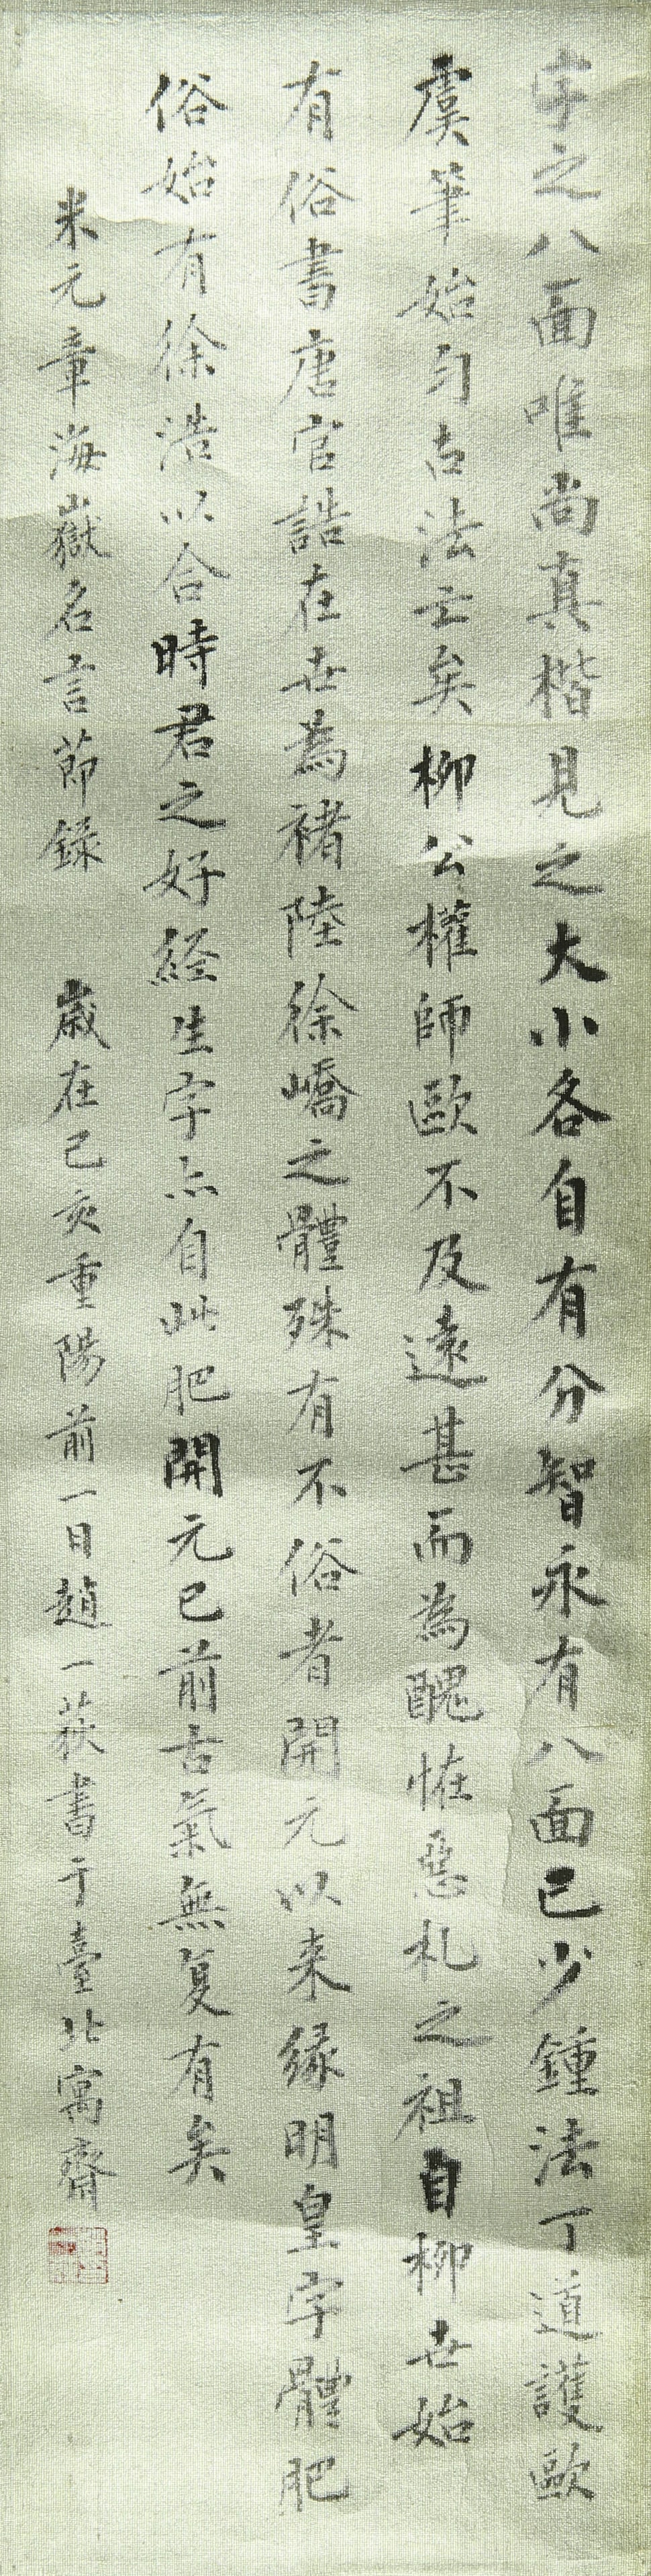 字之八面唯尚真楷見之大小各自有分智永有八面已少鍾法丁道護歐
虞筆始匀古法亡矣柳公權師歐不及遠甚而為醜怪惡札之祖自柳世始
有俗書唐官誥在世為褚陸徐嶠之體殊有不俗者開元以来緣明皇字體肥
俗始有徐浩以合時君之好経生字亦自此肥開元已前古氣無复有矣
米元章海嶽名言節錄 歲在己亥重陽前一日趙一荻書于臺北寓齋